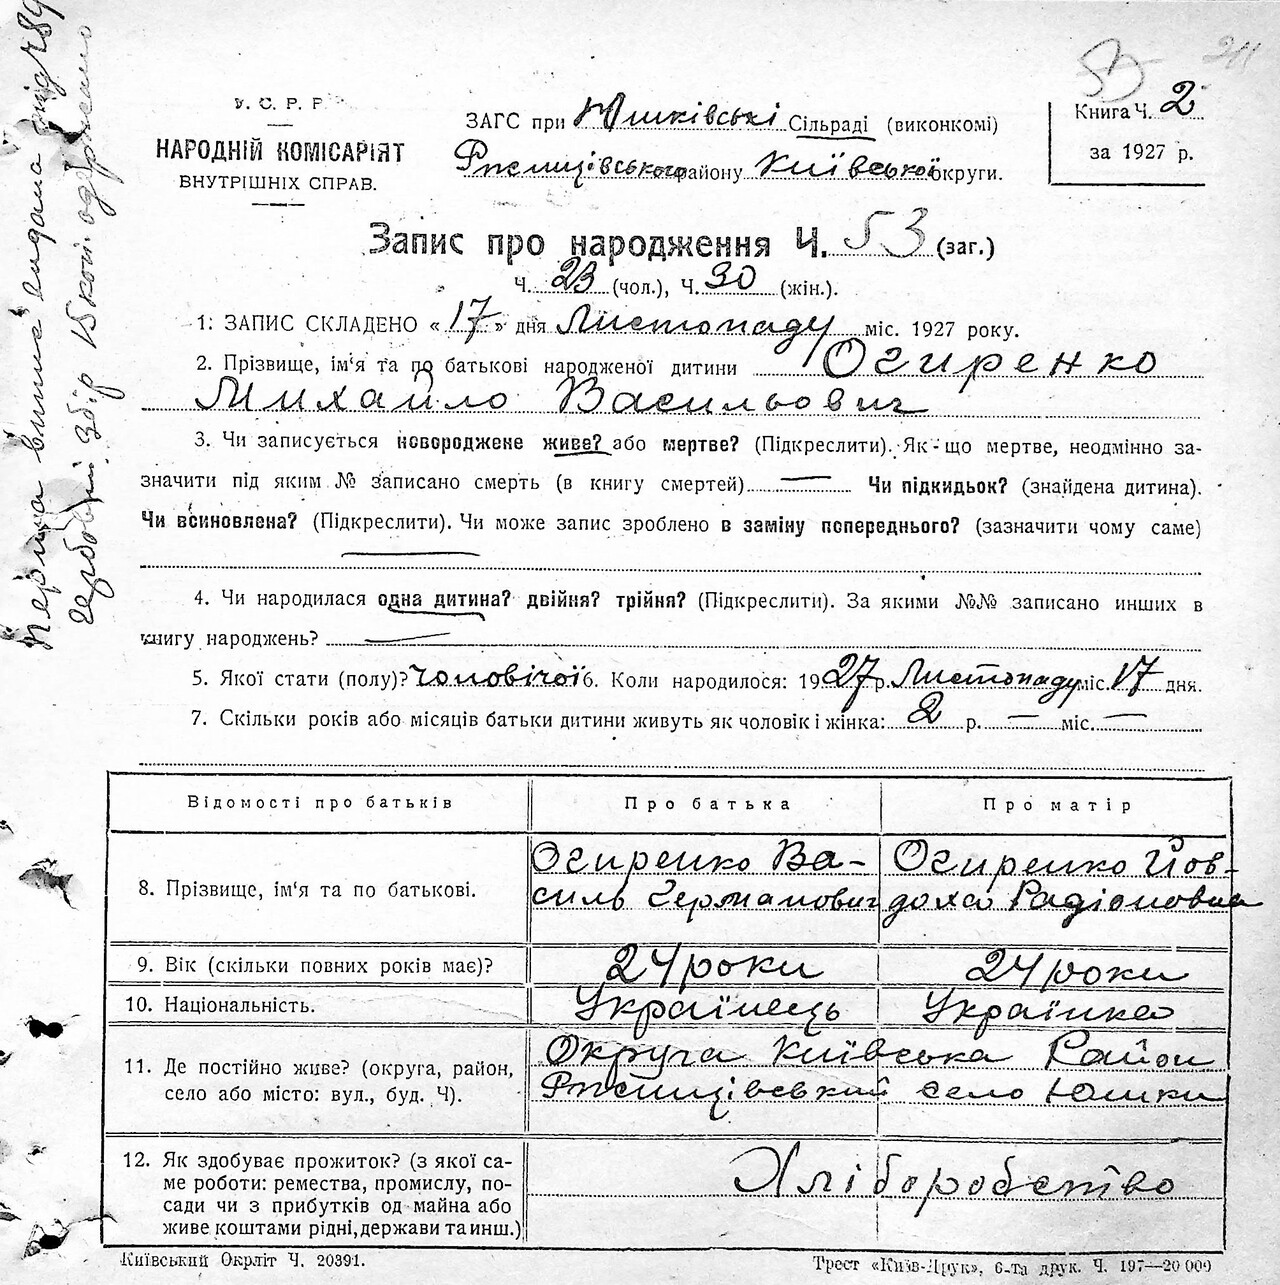 53
211
У. С. Р. Р.
НАРОДНІЙ КОМІСАРІЯТ
ВНУТРІШНІХ СПРАВ.
ЗАГС при Юшківські Сільраді (виконкомі)
Ржищівського району Київської округи.
Книга Ч. 2
за 1927 р.
Запис про народження Ч. 53 (заг.)
Ч. 23 (чол.), Ч. 30 (жін.).
1: ЗАПИС СКЛАДЕНО « 17 » дня Листопаду міс. 1927 року.
2. Прізвище, ім'я та по батькові народженої дитини Огиренко
Михайло Васильович
3. Чи записується новороджене живе? або мертве? (Підкреслити). Як-що мертве, неодмінно за-
значити під яким № записано смерть (в книгу смертей) — Чи підкидьок? (знайдена дитина).
Чи всиновлена? (Підкреслити). Чи може запис зроблено в заміну попереднього? (зазначити чому саме)
4. Чи народилася одна дитина? двійня? трійня? (Підкреслити). За якими №№ записано инших в
книгу народжень? —
5. Якої стати (полу)? Чоловічої 6. Коли народилося: 1927 р. Листопаду міс. 17 дня.
7. Скільки років або місяців батьки дитини живуть як чоловік і жінка: 2 р. — міс. —
Відомості про батьків Про батька Про матір
8. Прізвище, ім'я та по батькові. Огиренко Ва-
силь Германович Огиренко Йов-
доха Радіоновна
9. Вік (скільки повних років має)? 24 роки 24 роки
10. Національність. Українець Українка
11. Де постійно живе? (округа, район,
село або місто: вул., буд. Ч). Округа Київська Район
Ржищівський село Юшки
12. Як здобуває прожиток? (з якої са-
ме роботи: ремества, промислу, по-
сади чи з прибутків од майна або
живе коштами рідні, держави та инш.) Хліборобство
Київський Окрліт Ч. 20391.
Трест «Київ-Друк», 6-та друк. Ч. 197—20 000
Перша випись видана під 489
Гербовий збір 15 коп одержано